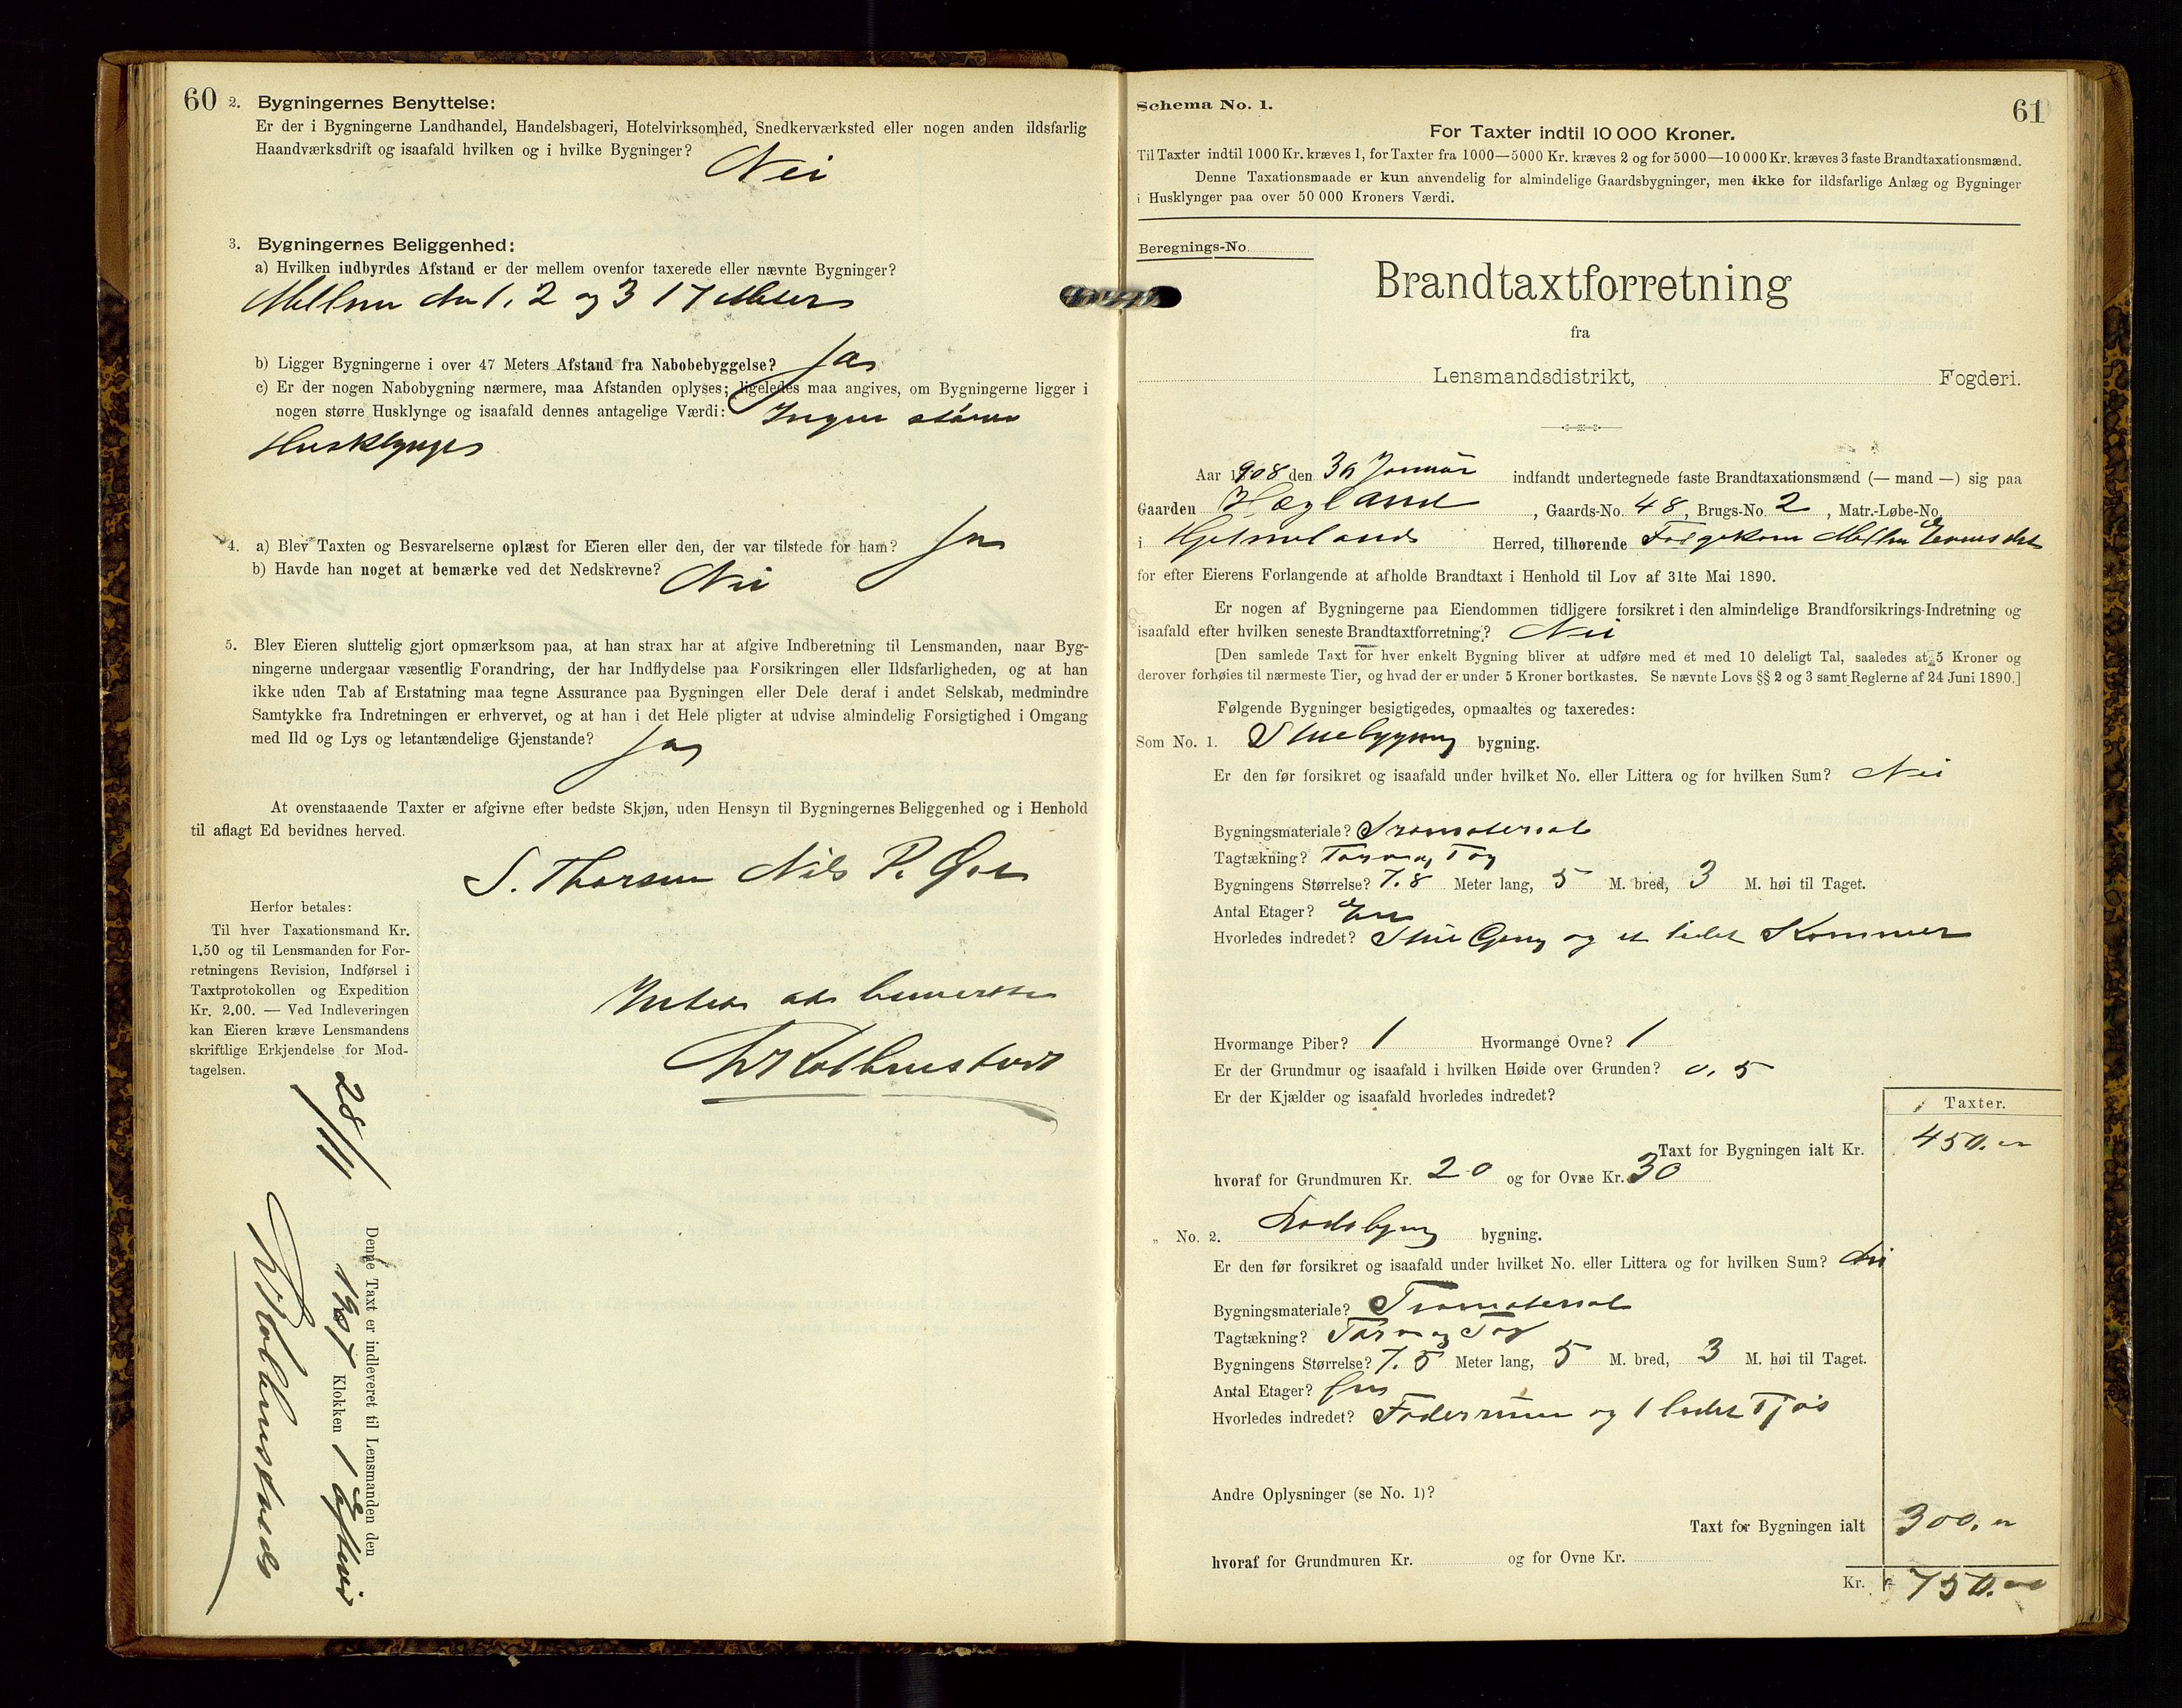 60
2. Bygningernes Benyttelse:
Er der i Bygningerne Landhandel, Handelsbageri, Hotelvirksomhed, Snedkerværksted eller nogen anden ildsfarlig
Haandværksdrift og isaafald hvilken og i hvilke Bygninger? Nei
3. Bygningernes Beliggenhed:
a) Hvilken indbyrdes Afstand er der mellem ovenfor taxerede eller nævnte Bygninger?
Mellem No 1, 2 og 3 17 Meter
b) Ligger Bygningerne i over 47 Meters Afstand fra Nabobebyggelse? Ja
c) Er der nogen Nabobygning nærmere, maa Afstanden oplyses; ligeledes maa angives, om Bygningerne ligger i
nogen større Husklynge og isaafald dennes antagelige Værdi: Ingen større
Husklynge
4. a) Blev Taxten og Besvarelserne oplæst for Eieren eller den, der var tilstede for ham? Ja
b) Havde han noget at bemærke ved det Nedskrevne? Nei
5. Blev Eieren sluttelig gjort opmærksom paa, at han strax har at afgive Indberetning til Lensmanden, naar Byg-
ningerne undergaar væsentlig Forandring, der har Indflydelse paa Forsikringen eller Ildsfarligheden, og at han
ikke uden Tab af Erstatning maa tegne Assurance paa Bygningen eller Dele deraf i andet Selskab, medmindre
Samtykke fra Indretningen er erhvervet, og at han i det Hele pligter at udvise almindelig Forsigtighed i Omgang
med Ild og Lys og letantændelige Gjenstande? Ja
At ovenstaaende Taxter er afgivne efter bedste Skjøn, uden Hensyn til Bygningernes Beliggenhed og i Henhold
til aflagt Ed bevidnes herved.
S. Thorsen Nils P.
Herfor betales:
Til hver Taxationsmand Kr.
1.50 og til Lensmanden for For-
retningens Revision, Indførsel i
Taxtprotokollen og Expedition
Kr. 2.00. — Ved Indleveringen
kan Eieren kræve Lensmandens
skriftlige Erkjendelse for Mod-
tagelsen.
Intet at bemerke
Denne Taxt er indleveret til Lensmanden den 28/11
1907 Klokken 1 Efterm
61
Schema No. 1.
For Taxter indtil 10 000 Kroner.
Til Taxter indtil 1000 Kr. kræves 1, for Taxter fra 1000—5000 Kr. kræves 2 og for 5000—10 000 Kr. kræves 3 faste Brandtaxationsmænd.
Denne Taxationsmaade er kun anvendelig for almindelige Gaardsbygninger, men ikke for ildsfarlige Anlæg og Bygninger
i Husklynger paa over 50 000 Kroners Værdi.
Beregnings-No.
Brandtaxtforretning
fra
Lensmandsdistrikt, Fogderi.
Aar 1908 den 30 Januar indfandt undertegnede faste Brandtaxationsmænd (— mand —) sig paa
Gaarden Hægland, Gaards-No. 48, Brugs-No. 2, Matr.-Løbe-No.
i Hjelmeland Herred, tilhørende
for efter Eierens Forlangende at afholde Brandtaxt i Henhold til Lov af 31te Mai 1890.
Er nogen af Bygningerne paa Eiendommen tidligere forsikret i den almindelige Brandforsikrings-Indretning og
isaafald efter hvilken seneste Brandtaxtforretning? Nei
[Den samlede Taxt for hver enkelt Bygning bliver at udføre med et med 10 deleligt Tal, saaledes at 5 Kroner og
derover forhøies til nærmeste Tier, og hvad der er under 5 Kroner bortkastes. Se nævnte Lovs §§ 2 og 3 samt Reglerne af 24 Juni 1890.]
Følgende Bygninger besigtigedes, opmaaltes og taxeredes:
Som No. 1. Stuebygning bygning.
Er den før forsikret og isaafald under hvilket No. eller Littera og for hvilken Sum? Nei
Bygningsmateriale? Træmaterial
Tagtækning? Torv og Tag
Bygningens Størrelse? 7.8 Meter lang, 5 M. bred, 3 M. høi til Taget.
Antal Etager? En
Hvorledes indredet? Stue Gang og et lidet Kammer
Hvormange Piber? 1 Hvormange Ovne? 1
Er der Grundmur og isaafald i hvilken Høide over Grunden? 0.5
Er der Kjælder og isaafald hvorledes indredet?
Taxter.
Taxt for Bygningen ialt Kr. 450.
hvoraf for Grundmuren Kr. 20 og for Ovne Kr. 30
„ No. 2. bygning.
Er den før forsikret og isaafald under hvilket No. eller Littera og for hvilken Sum? Nei
Bygningsmateriale? Træmaterial
Tagtækning? Torv og Tag
Bygningens Størrelse? 7.5 Meter lang, 5 M. bred, 3 M. høi til Taget.
Antal Etager? En
Hvorledes indredet? Foderrum og 1 lidet Fjøs
Andre Oplysninger (se No. 1)?
Taxt for Bygningen ialt 300.
hvoraf for Grundmuren Kr. og for Ovne Kr.
Kr. 750.